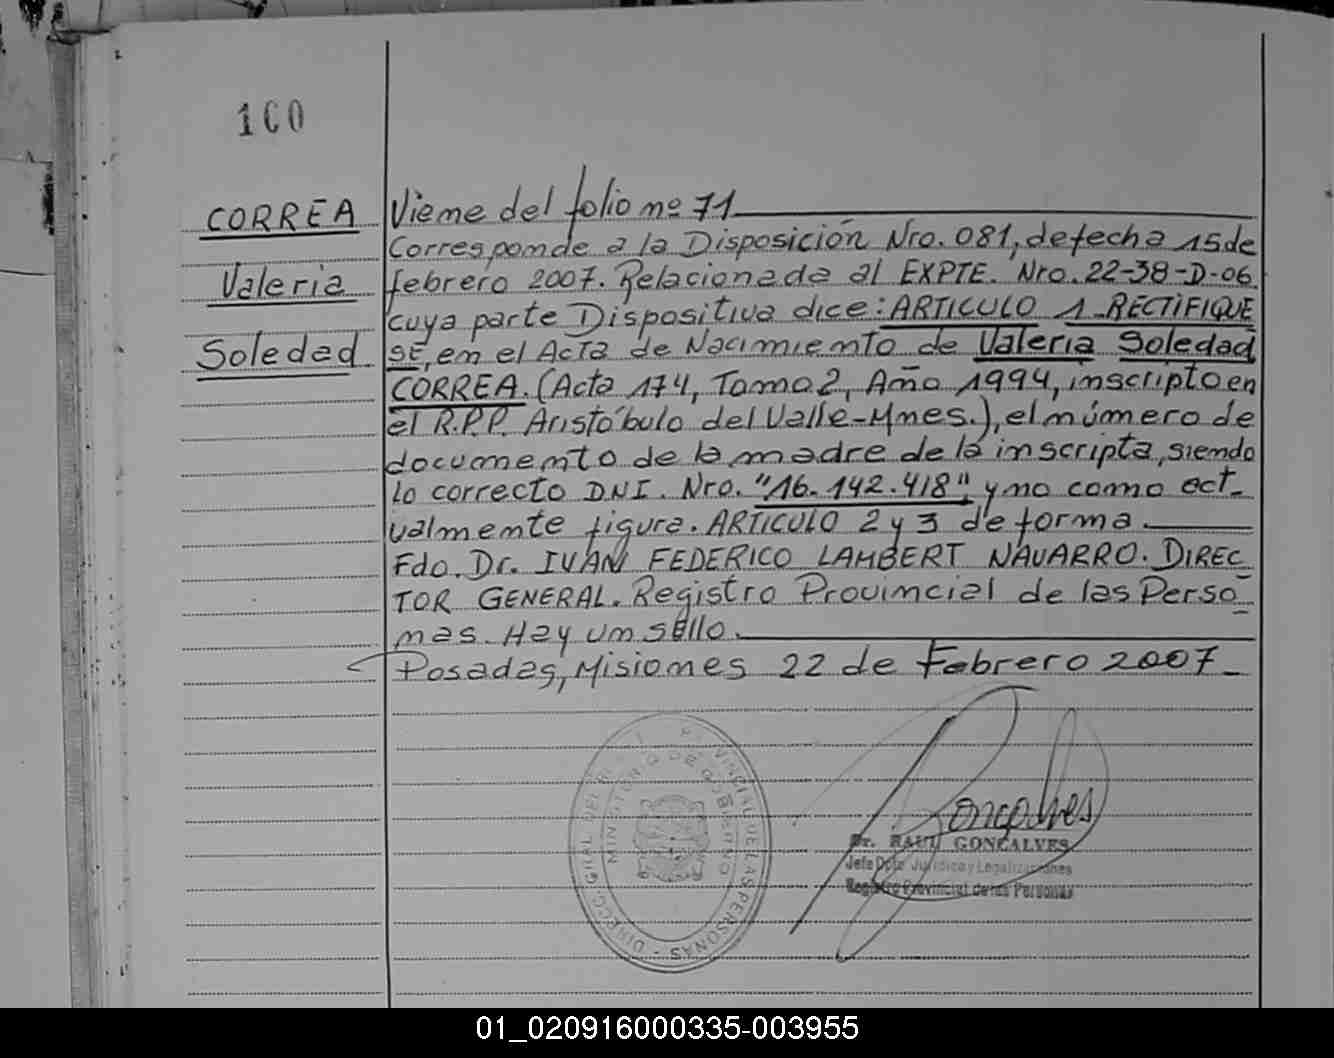 100
CORREA
Valeria
Soledad
Viene del folio nº 71
Corresponde a la Disposición Nro. 081, de fecha 15 de
febrero 2007. Relacionada al EXPTE. Nro. 22-38-D-06
cuya parte Dispositiva dice: ARTICULO 1_RECTIFIQUE
SE, en el Acta de Nacimiento de Valeria Soledad
CORREA. (Acta 174, Tomo 2, Año 1994, inscripto en
el R.P.P. Aristóbulo del Valle-Mnes.), el número de
documento de la madre de la inscripta, siendo
lo correcto DNI. Nro. "16.142.418", y no como act_
ualmente figura. ARTICULO 2 y 3 de forma.
Fdo. Dr. IVAN FEDERICO LAMBERT NAVARRO. DIREC_
TOR GENERAL. Registro Provincial de las Perso_
nas. Hay un sello.
Posadas, Misiones 22 de Febrero 2007_
MINISTERIO DE GOBIERNO
PROVINCIAL DE LAS PERSONAS - DIRECC. GRAL DEL
Goncalves
Dr. RAUL GONCALVES
Jefe Dpto Jurídico y Legalizaciones
Registro Provincial de las Personas
01_020916000335-003955